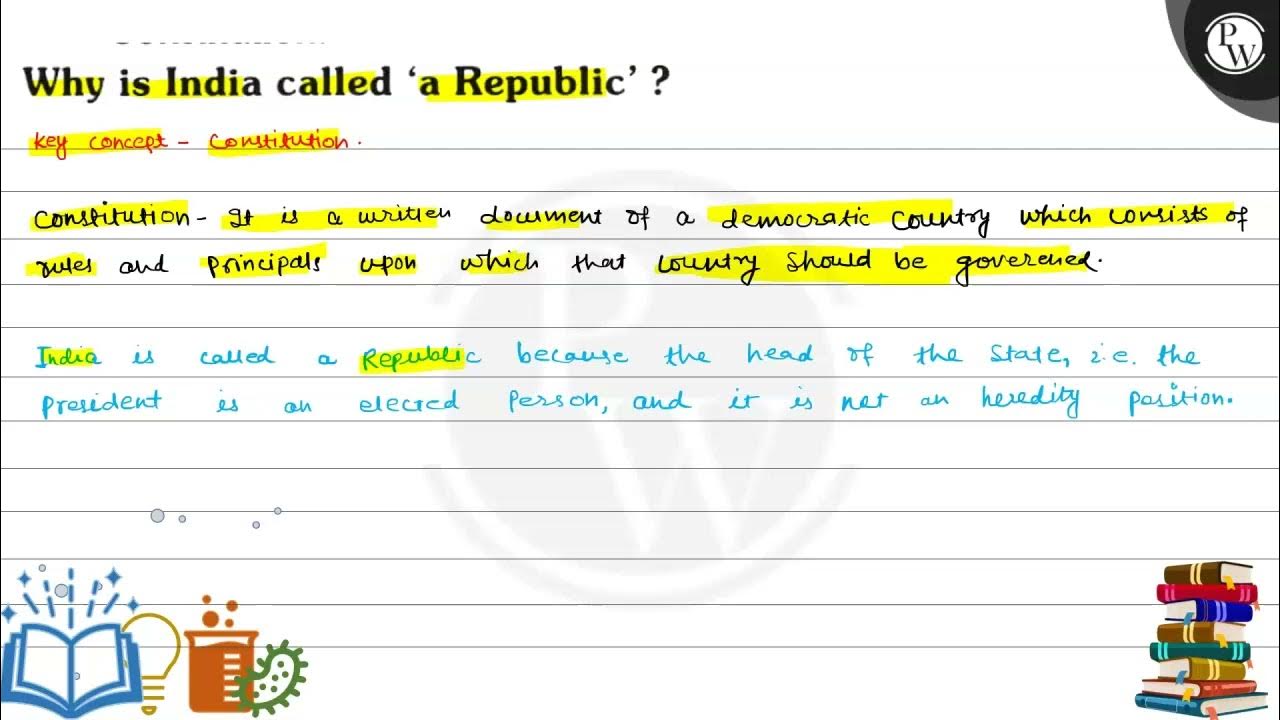 Why is India called 'a Republic' ?
PW
Key concept - Constitution.
Constitution - It is a written document of a democratic country which consists of
rules and principals upon which that country should be governed.
India is called a Republic because the head of the State, i.e. the
president is an elected person, and it is not an heredity position.